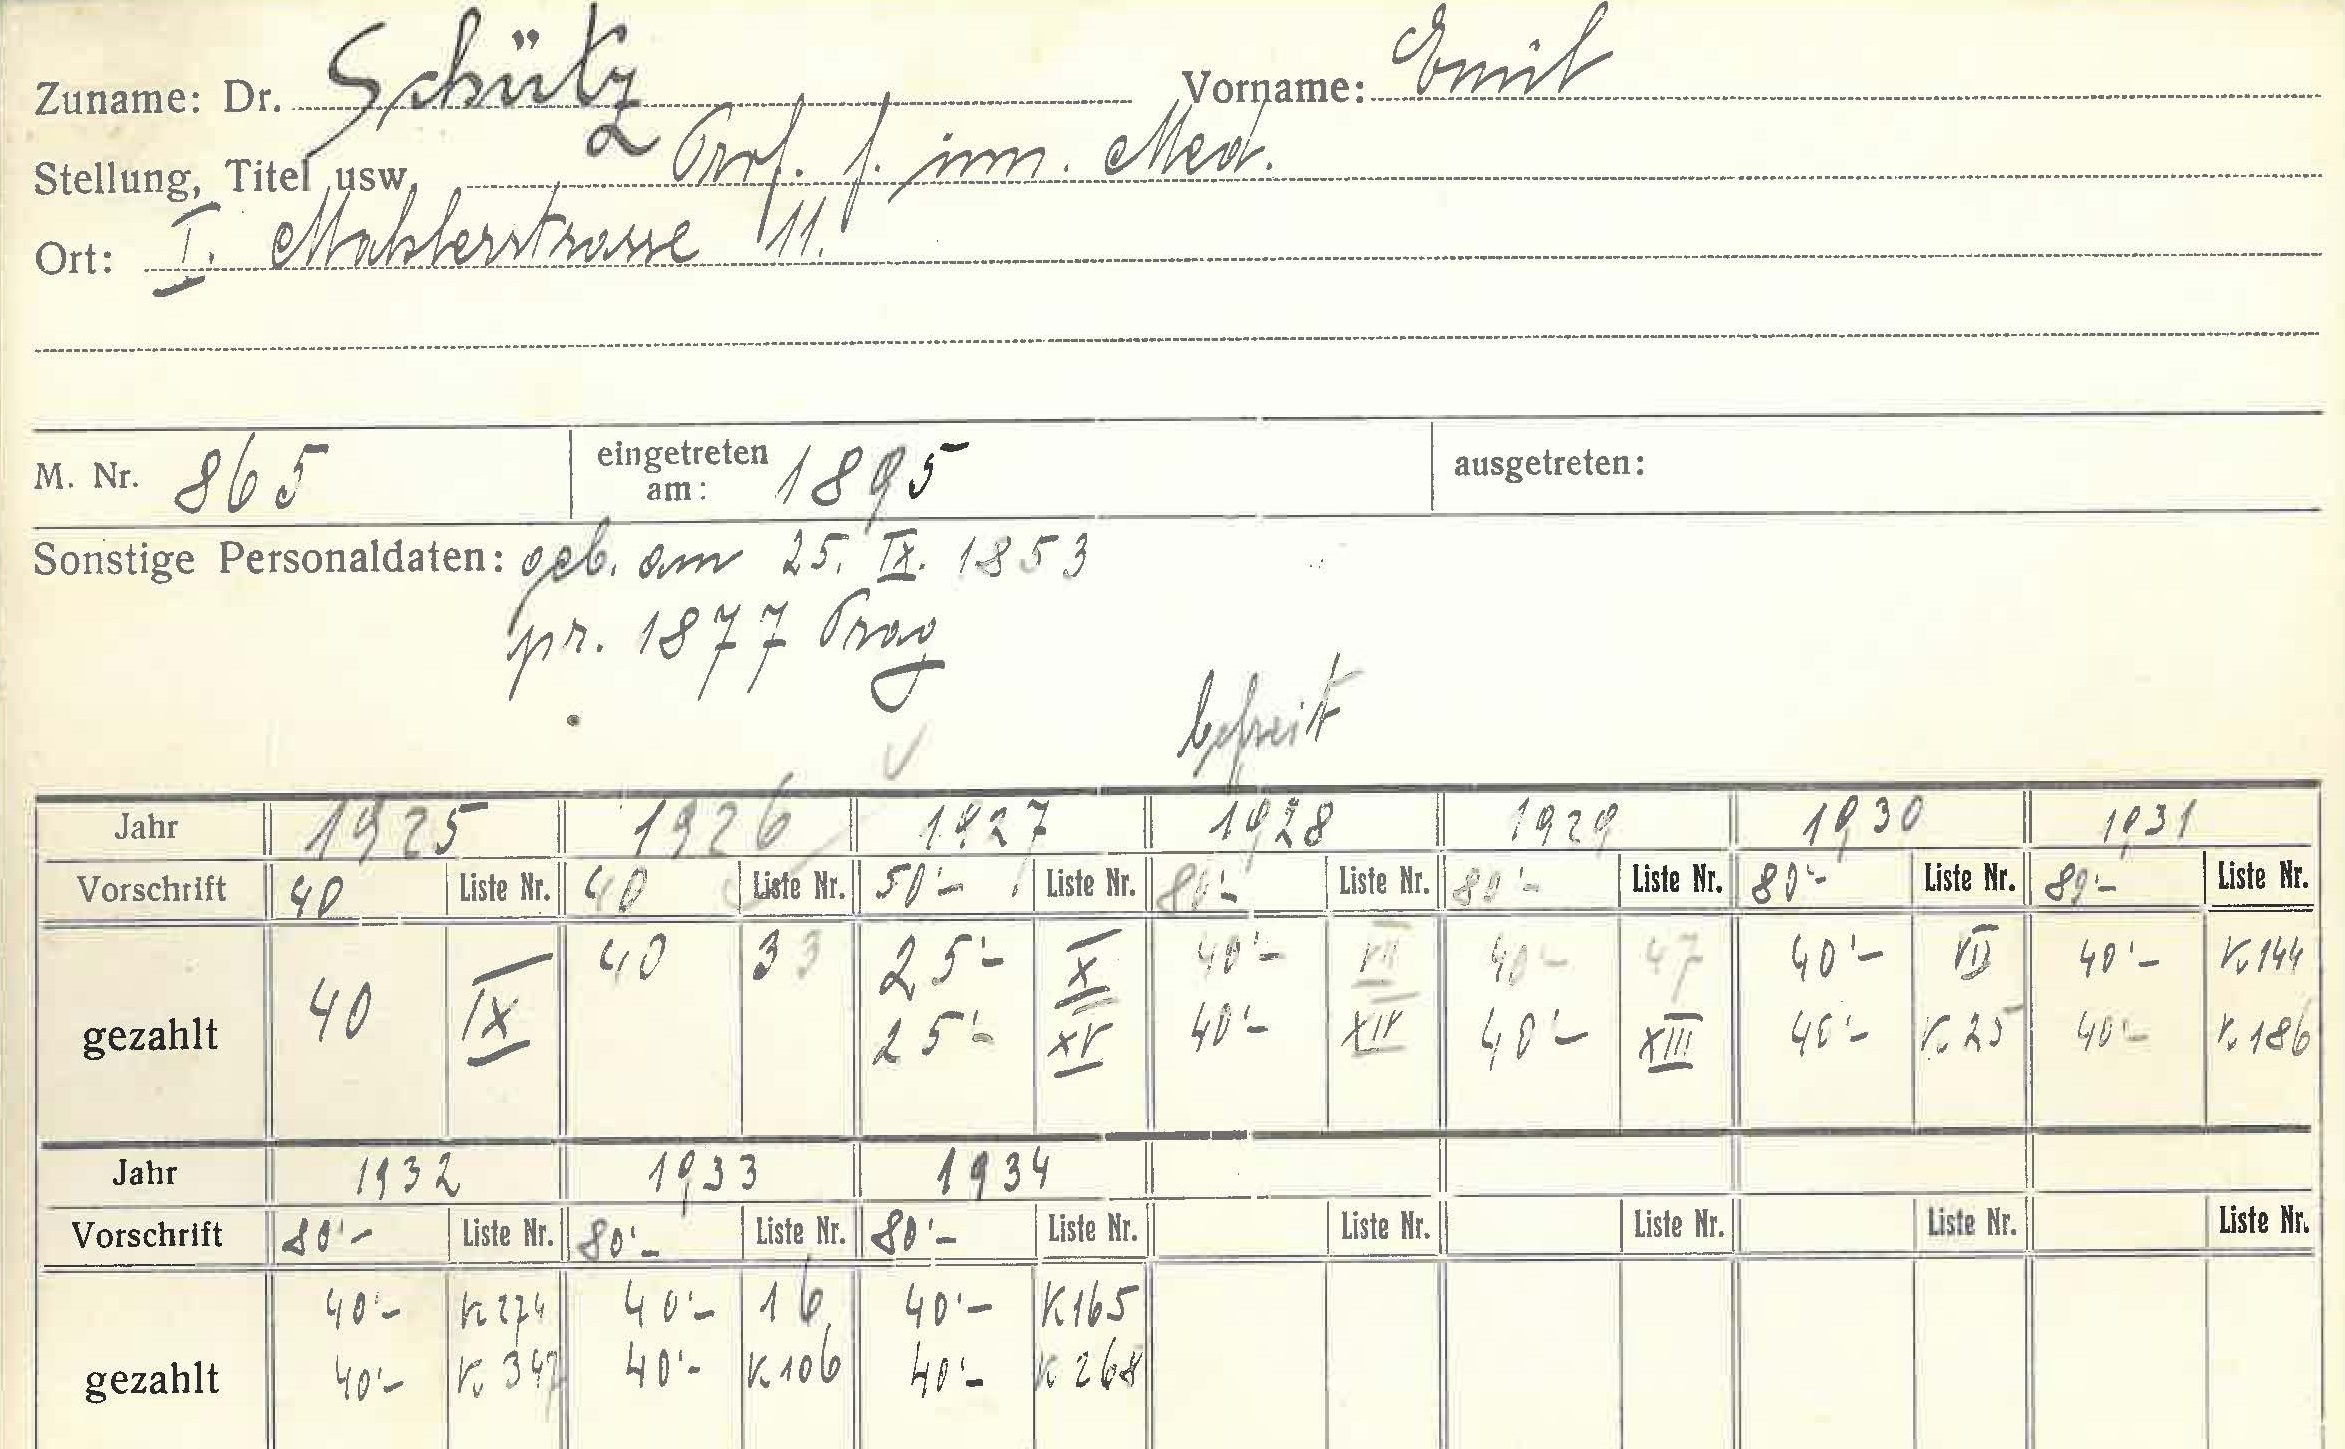 Zuname: Dr. Schütz Vorname: Emil
Stellung, Titel usw. Prof. f. inn. Med.
Ort: I. Mahlerstrasse 11.
M. Nr. 865 eingetreten am: 1895 ausgetreten:
Sonstige Personaldaten: geb. am 25. IX. 1853
pr. 1877 Prag
befreit
Jahr 1925 1926 1927 1928 1929 1930 1931
Vorschrift 40 Liste Nr. 40 Liste Nr. 50'- Liste Nr. 80'- Liste Nr. 80'- Liste Nr. 80'- Liste Nr. 80'- Liste Nr.
gezahlt 40 IX 40 33 25'- X 40'- VII 40'- 47 40'- VII 40'- K. 144
25'- XV 40'- XIV 40'- XIII 40'- K. 25 40'- K. 186
Jahr 1932 1933 1934
Vorschrift 80'- Liste Nr. 80'- Liste Nr. 80'- Liste Nr. Liste Nr. Liste Nr. Liste Nr. Liste Nr.
40'- K. 274 40'- 16 40'- K. 165
gezahlt 40'- K. 347 40'- K. 106 40'- K 268